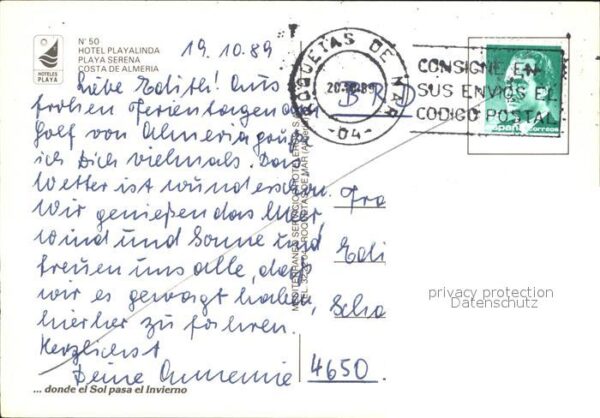 Nº 50
HOTEL PLAYALINDA
PLAYA SERENA
COSTA DE ALMERIA
HOTELES
PLAYA
19.10.89
Liebe Edith! Aus
frohen Ferientagen am
Golf von Almeria grüße
ich Dich vielmals. Das
Wetter ist wunderschön.
Wir genießen das Meer
Wind und Sonne und
freuen uns alle, dass
wir es gewagt haben,
hierher zu fahren.
Herzlichst
Deine Annemie
... donde el Sol pasa el Invierno
ROQUETAS DE MAR
20.10.89
-04-
CONSIGNE EN
SUS ENVIOS EL
CODIGO POSTAL
BRD
España correos
Fra
Edi
Scha
4650
privacy protection
Datenschutz